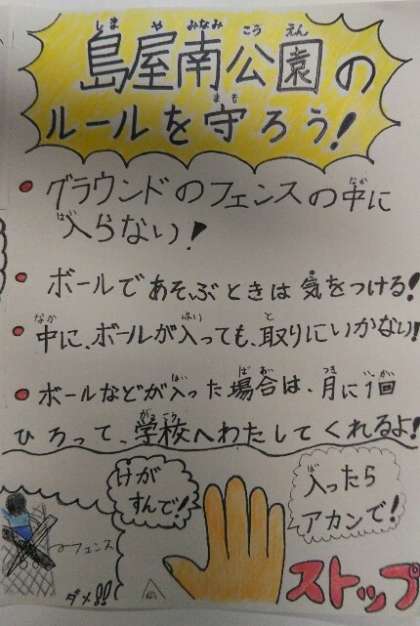 島屋南公園の
ルールを守ろう!
・グラウンドのフェンスの中に
入らない!
・ボールであそぶときは気をつける!
・中に、ボールが入っても、取りにいかない!
・ボールなどが入った場合は、月に1回
ひろって、学校へわたしてくれるよ!
けが
すんで!
入ったら
アカンで!
フェンス
ダメ!!
ストップ